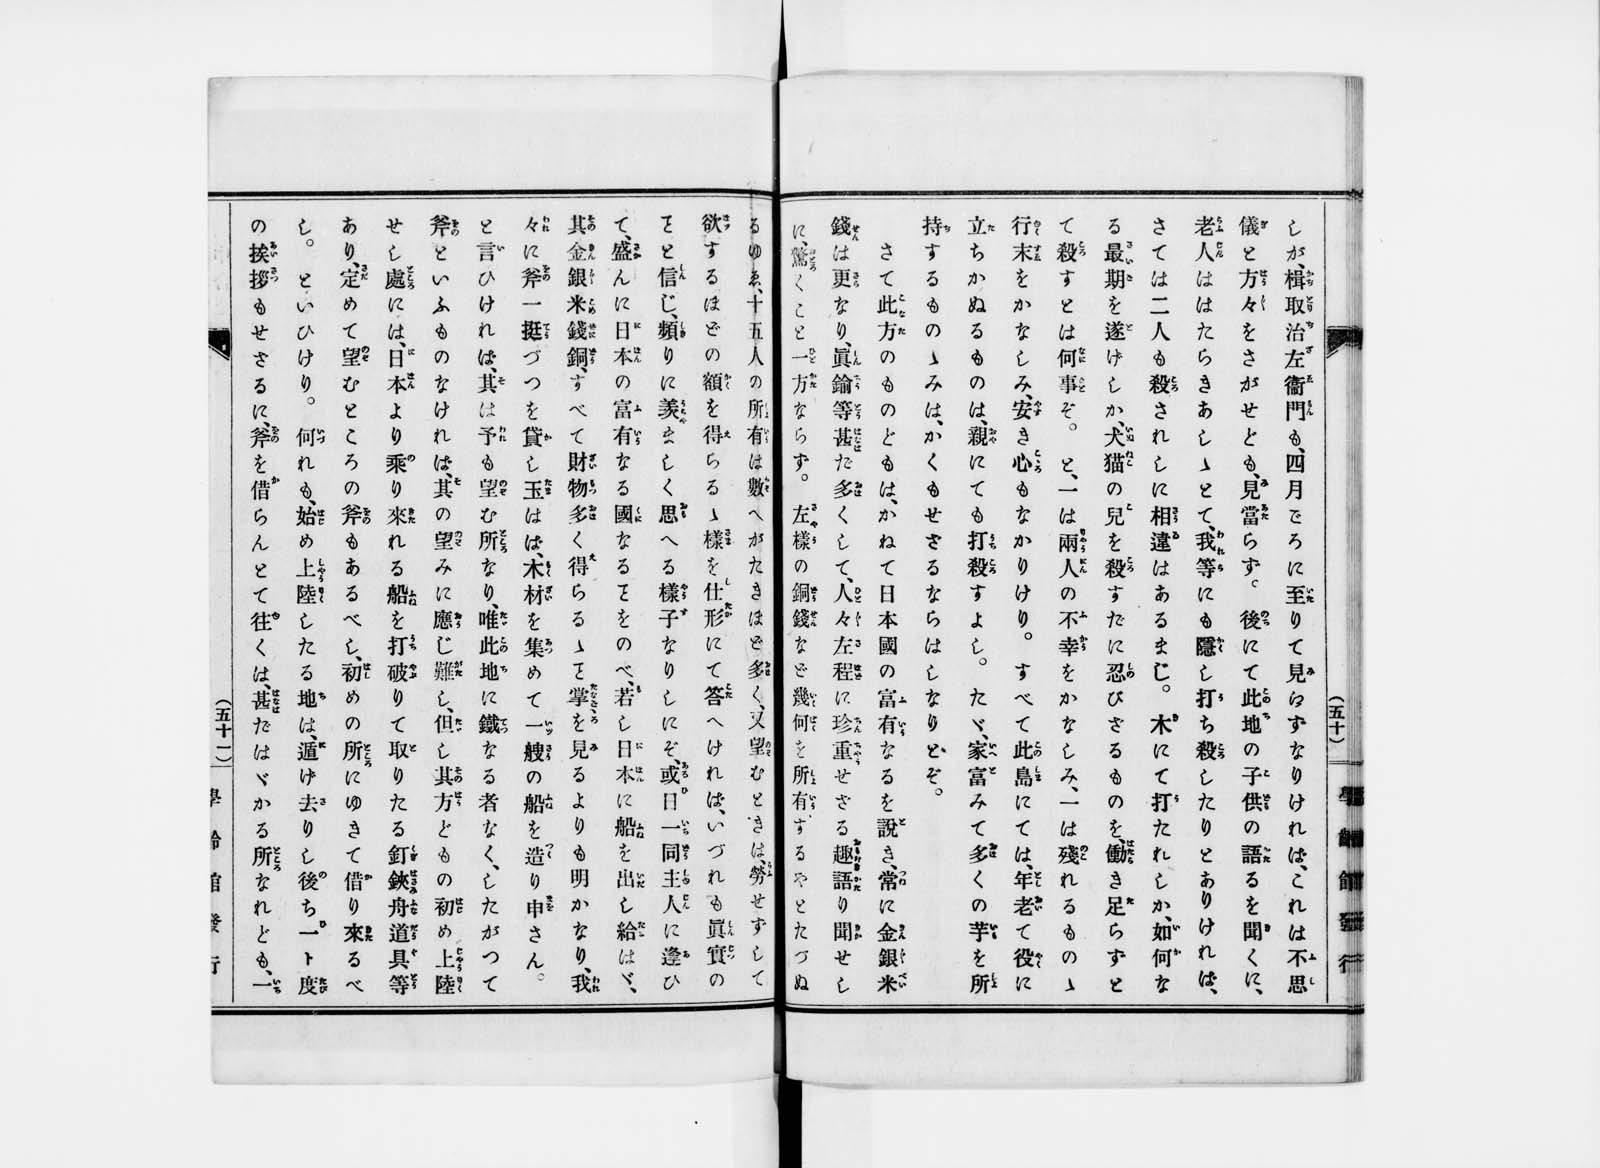 しが、楫取治左衞門も、四月ごろに至りて見らずなりければ、これは不思
儀と方々をさがせども、見當らず。後にて此地の子供の語るを聞くに、
老人ははたらきあしゝとて、我等にも隱し打ち殺したりとありければ、
さては二人も殺されしに相違はあるまじ。木にて打たれしか、如何な
る最期を遂げしか、犬猫の兒を殺すだに忍びざるものを、働き足らずと
て殺すとは何事ぞ。と、一は兩人の不幸をかなしみ、一は殘れるものゝ
行末をかなしみ、安き心もなかりけり。すべて此島にては、年老て役に
立ちかぬるものは、親にても打殺すよし。たゞ、家富みて多くの芋を所
持するものゝみは、かくもせざるならはしなりとぞ。
さて此方のものどもは、かねて日本國の富有なるを說き、常に金銀米
錢は更なり、眞鍮等甚だ多くして、人々左程に珍重せざる趣語り聞せし
に、驚くこと一方ならず。左樣の銅錢など幾何を所有するやとたづぬ
（五十）
學齡館發行
るゆゑ、十五人の所有は數へがたきほど多く、又望むときは、勞せずして
欲するほどの額を得らるゝ樣を仕形にて答へければ、いづれも眞實の
ヿと信じ、頻りに羨ましく思へる樣子なりしにぞ、或日一同主人に逢ひ
て、盛んに日本の富有なる國なるヿをのべ、若し日本に船を出し給はゞ、
其金銀米錢銅、すべて財物多く得らるゝヿ掌を見るよりも明かなり、我
々に斧一挺づつを貸し玉はば、木材を集めて一艘の船を造り申さん。
と言ひければ、其は予も望む所なり、唯此地に鐵なる者なく、したがつて
斧といふものなければ、其の望みに應じ難し、但し其方どもの初め上陸
せし處には、日本より乘り來れる船を打破りて取りたる釘鋏舟道具等
あり、定めて望むところの斧もあるべし、初めの所にゆきて借り來るべ
し。といひけり。何れも、始め上陸したる地は、遁げ去りし後ち一ト度
の挨拶もせざるに、斧を借らんとて往くは、甚だはゞかる所なれども、一
（五十一）
學齡館發行